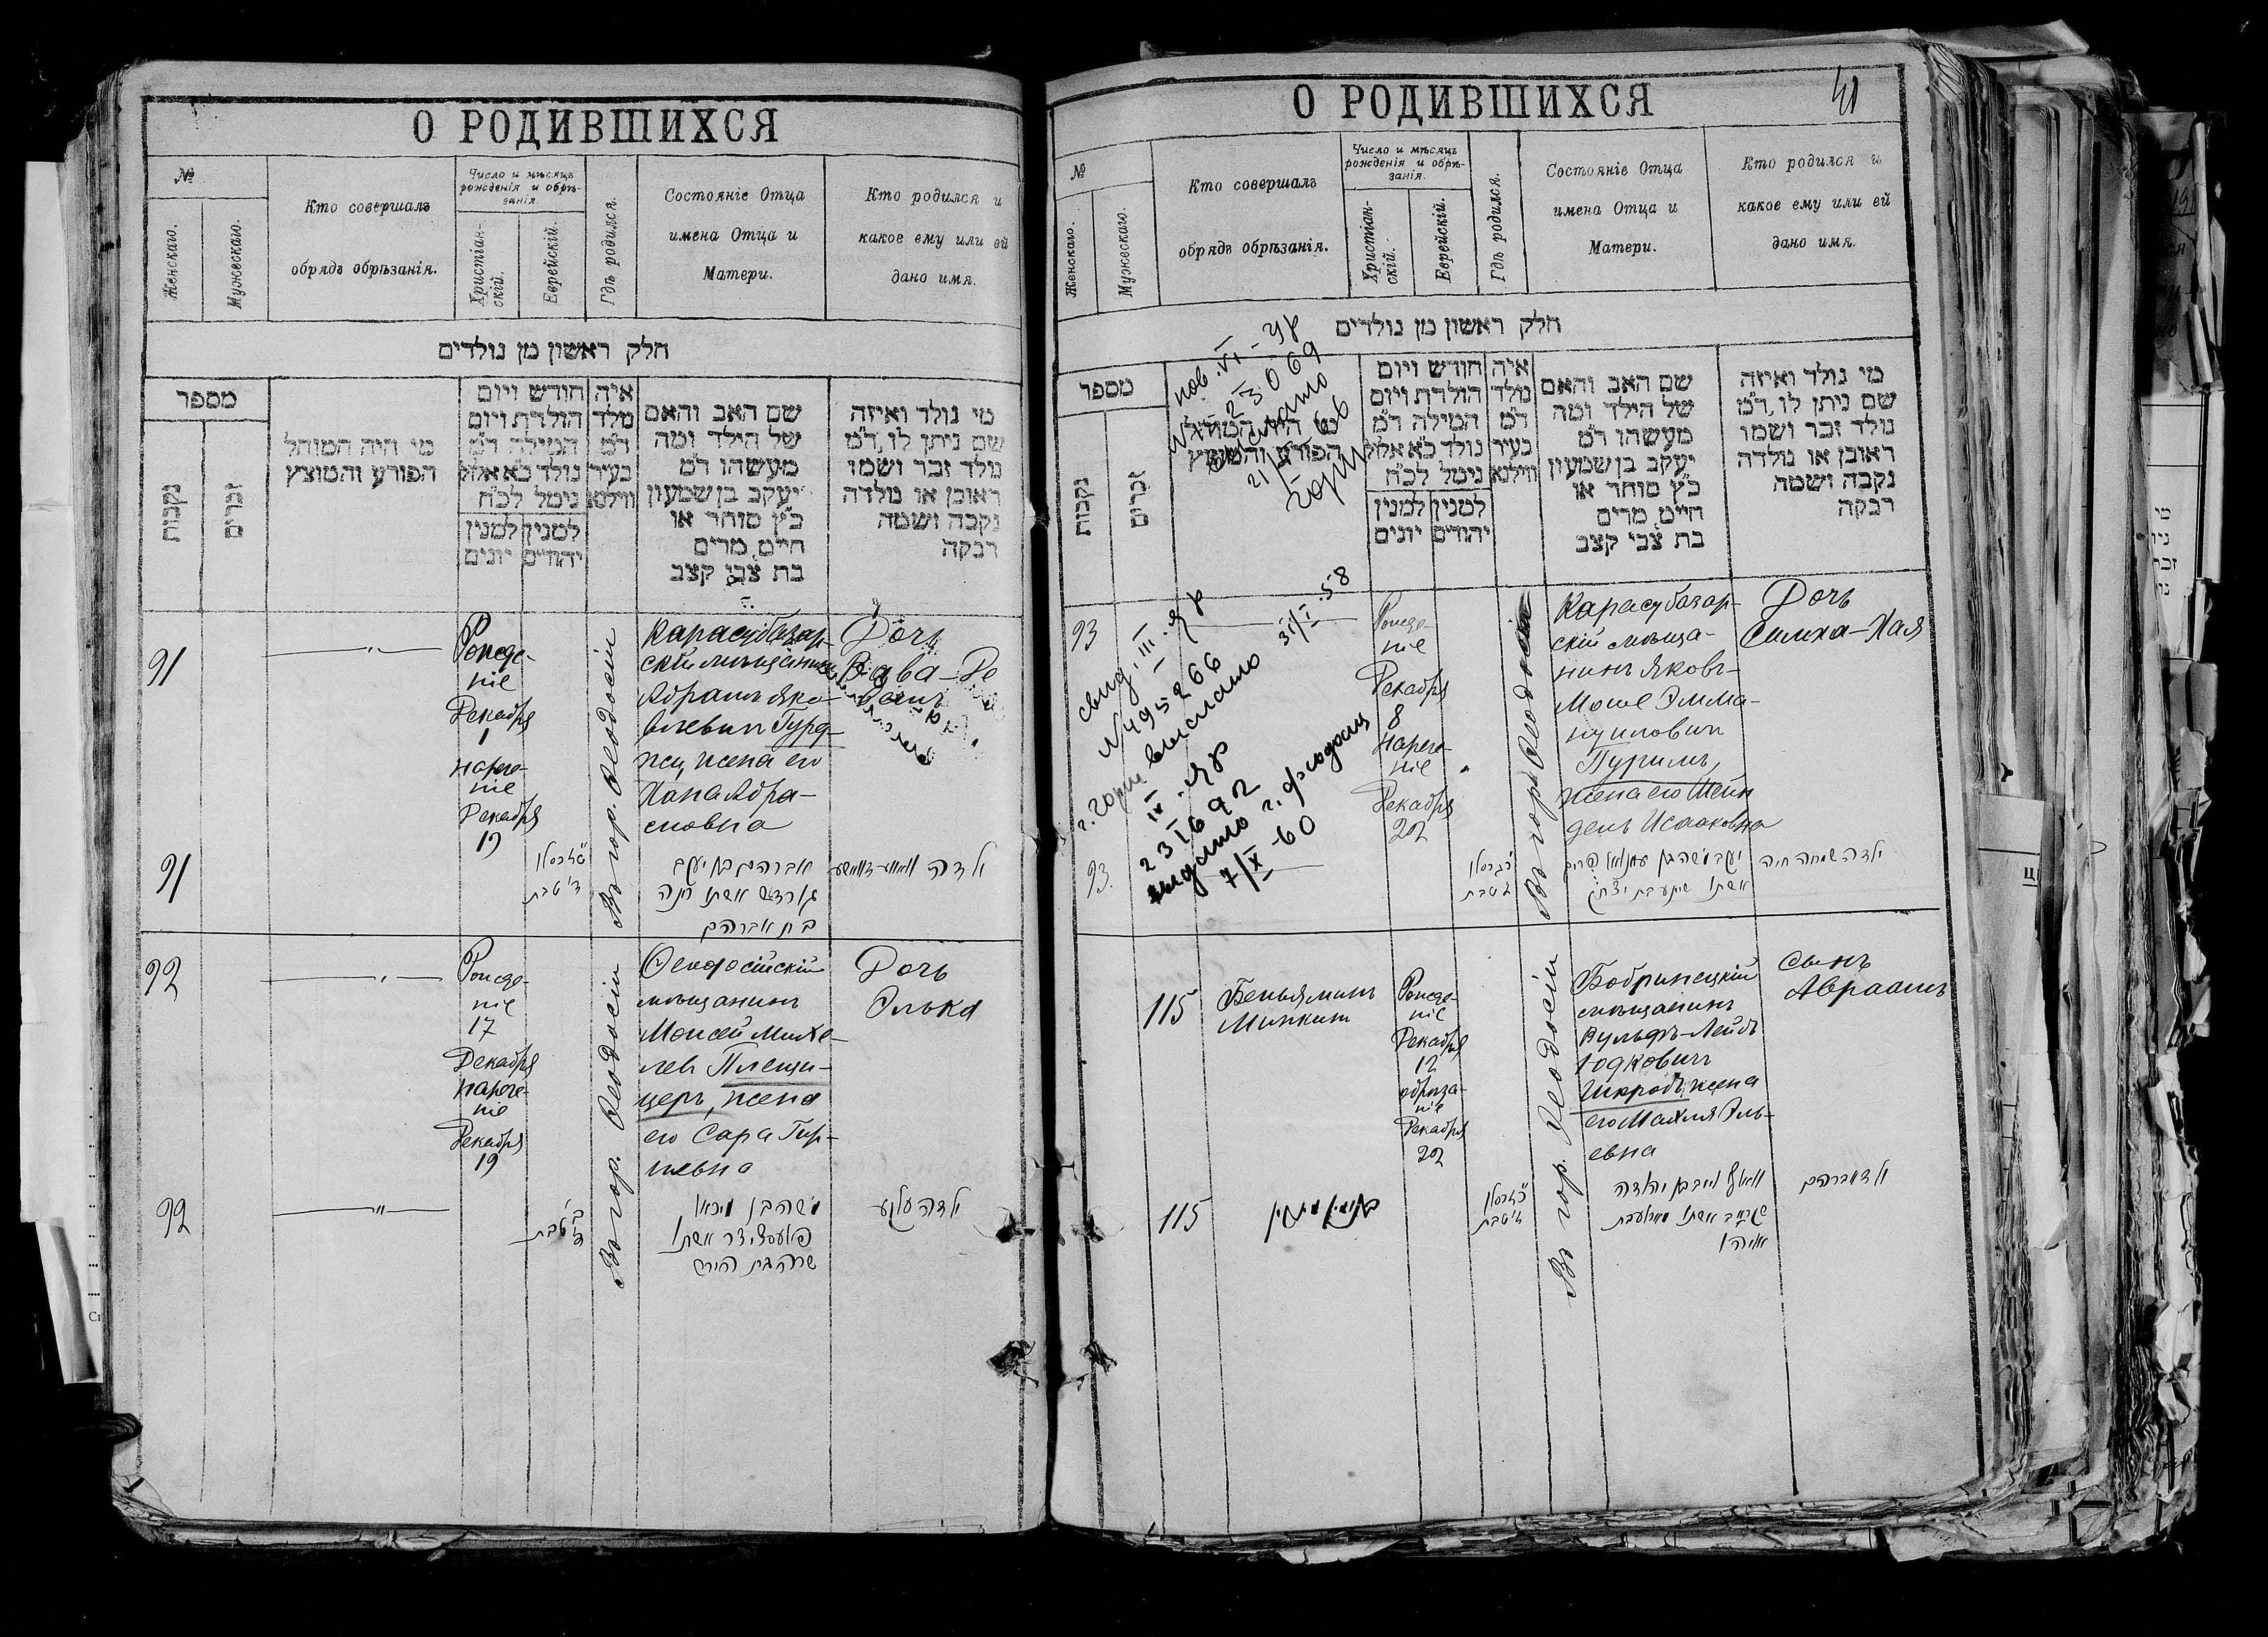 О РОДИВШИХСЯ
№
Женскаго.
Мужескаго.
Кто совершалъ
обрядъ обрѣзанія.
Число и мѣсяцъ
рожденія и обрѣ-
занія.
Христіан-
скій.
Еврейскій.
Гдѣ родился.
Состояніе Отца
имена Отца и
Матери.
Кто родился и
какое ему или ей
дано имя.
חלק ראשון מן נולדים
מספר
נקבות
זכרים
מי היה המוהל
הפורע והמוצץ
חודש ויום
הולדת ויום
המילה ד״מ
נולד כ״א אלול
נימל לכ״ח
למנין למנין
יהודים יונים
איה
מלד
ד״מ
בעיר
ווילנא
שם האב והאם
של הילד ומה
מעשהו ד״מ
יעקב בן שמעון
כ״ץ סוחר או
חייט, מרים
בת צבי קצב
מי נולד ואיזה
שם ניתן לו, ד״מ
נולד זכר ושמו
ראובן או נולדה
נקבה ושמה
רבקה
91
Рожде-
ніе
Декабря
1
нарече-
ніе
Декабря
19
Въ гор. Ѳеодосіи
Карасубазар-
скій мѣщанинъ
Абрамъ Яко-
влевич Гурд-
жи, жена его
Хана Абра-
мовна
Дочь
91
אברהם בן יעקב
גורדזש אשתו חנה
בת אברהם
92
Рожде-
ніе
17
Декабря
нарече-
ніе
Декабря
19
Въ гор. Ѳеодосіи
Ѳеодосійскій
мѣщанинъ
Моисей Михе-
лев Плещи-
церъ, жена
его Сара Гир-
шевна
Дочь
Элька
92
משה בן מיכאל
אשתו
שרה בת הירש
ילדה עלקע
О РОДИВШИХСЯ
41
№
Женскаго.
Мужескаго.
Кто совершалъ
обрядъ обрѣзанія.
Число и мѣсяцъ
рожденія и обрѣ-
занія.
Христіан-
скій.
Еврейскій.
Гдѣ родился.
Состояніе Отца
имена Отца и
Матери.
Кто родился и
какое ему или ей
дано имя.
חלק ראשון מן נולדים
מספר
נקבות
זכרים
חודש ויום
הולדת ויום
המילה ד״מ
נולד כ״א אלול
נימל לכ״ח
למנין למנין
יהודים יונים
איה
מלד
ד״מ
בעיר
ווילנא
שם האב והאם
של הילד ומה
מעשהו ד״מ
יעקב בן שמעון
כ״ץ סוחר או
חייט, מרים
בת צבי קצב
מי נולד ואיזה
שם ניתן לו, ד״מ
נולד זכר ושמו
ראובן או נולדה
נקבה ושמה
רבקה
93
свид. III-ЯР
N 495266
г. Гори выслано 31/I.58
IX-ЯР
231692
выдано г. Феодосия
7/IX-60
Рожде-
ніе
Декабря
8
нарече-
ніе
Декабря
22
Въ гор. Ѳеодосіи
Карасубазар-
скій мѣща-
нинъ Яковъ-
Моше Эмма-
нуилович
Пуримъ,
жена его Шейн
дель Исааковна
Дочь
Симха-Хая
93.
ילדה שמחה חיה
115
Беньяминъ
Минкин
Рожде-
ніе
Декабря
12
обрѣза-
ніе
Декабря
22
Въ гор. Ѳеодосіи
Бобринецкій
мѣщанинъ
Вульфъ-Лейбъ
Юдкович
Шкробъ, жена
его Махля Эль-
евна
Сынъ
Авраамъ
115
בנימין מינקין
וואלף לייב בן יהודה
ילד אברהם